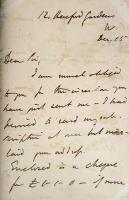 12, Hereford Gardens
W.
Dec. 15
Dear Sir,
I am much obliged
to you for the circular you
have just sent me - I have
desired to send my sub-
scription at once but mis-
laid your address.
Enclosed is a cheque
for £ 1-1-0 - if more